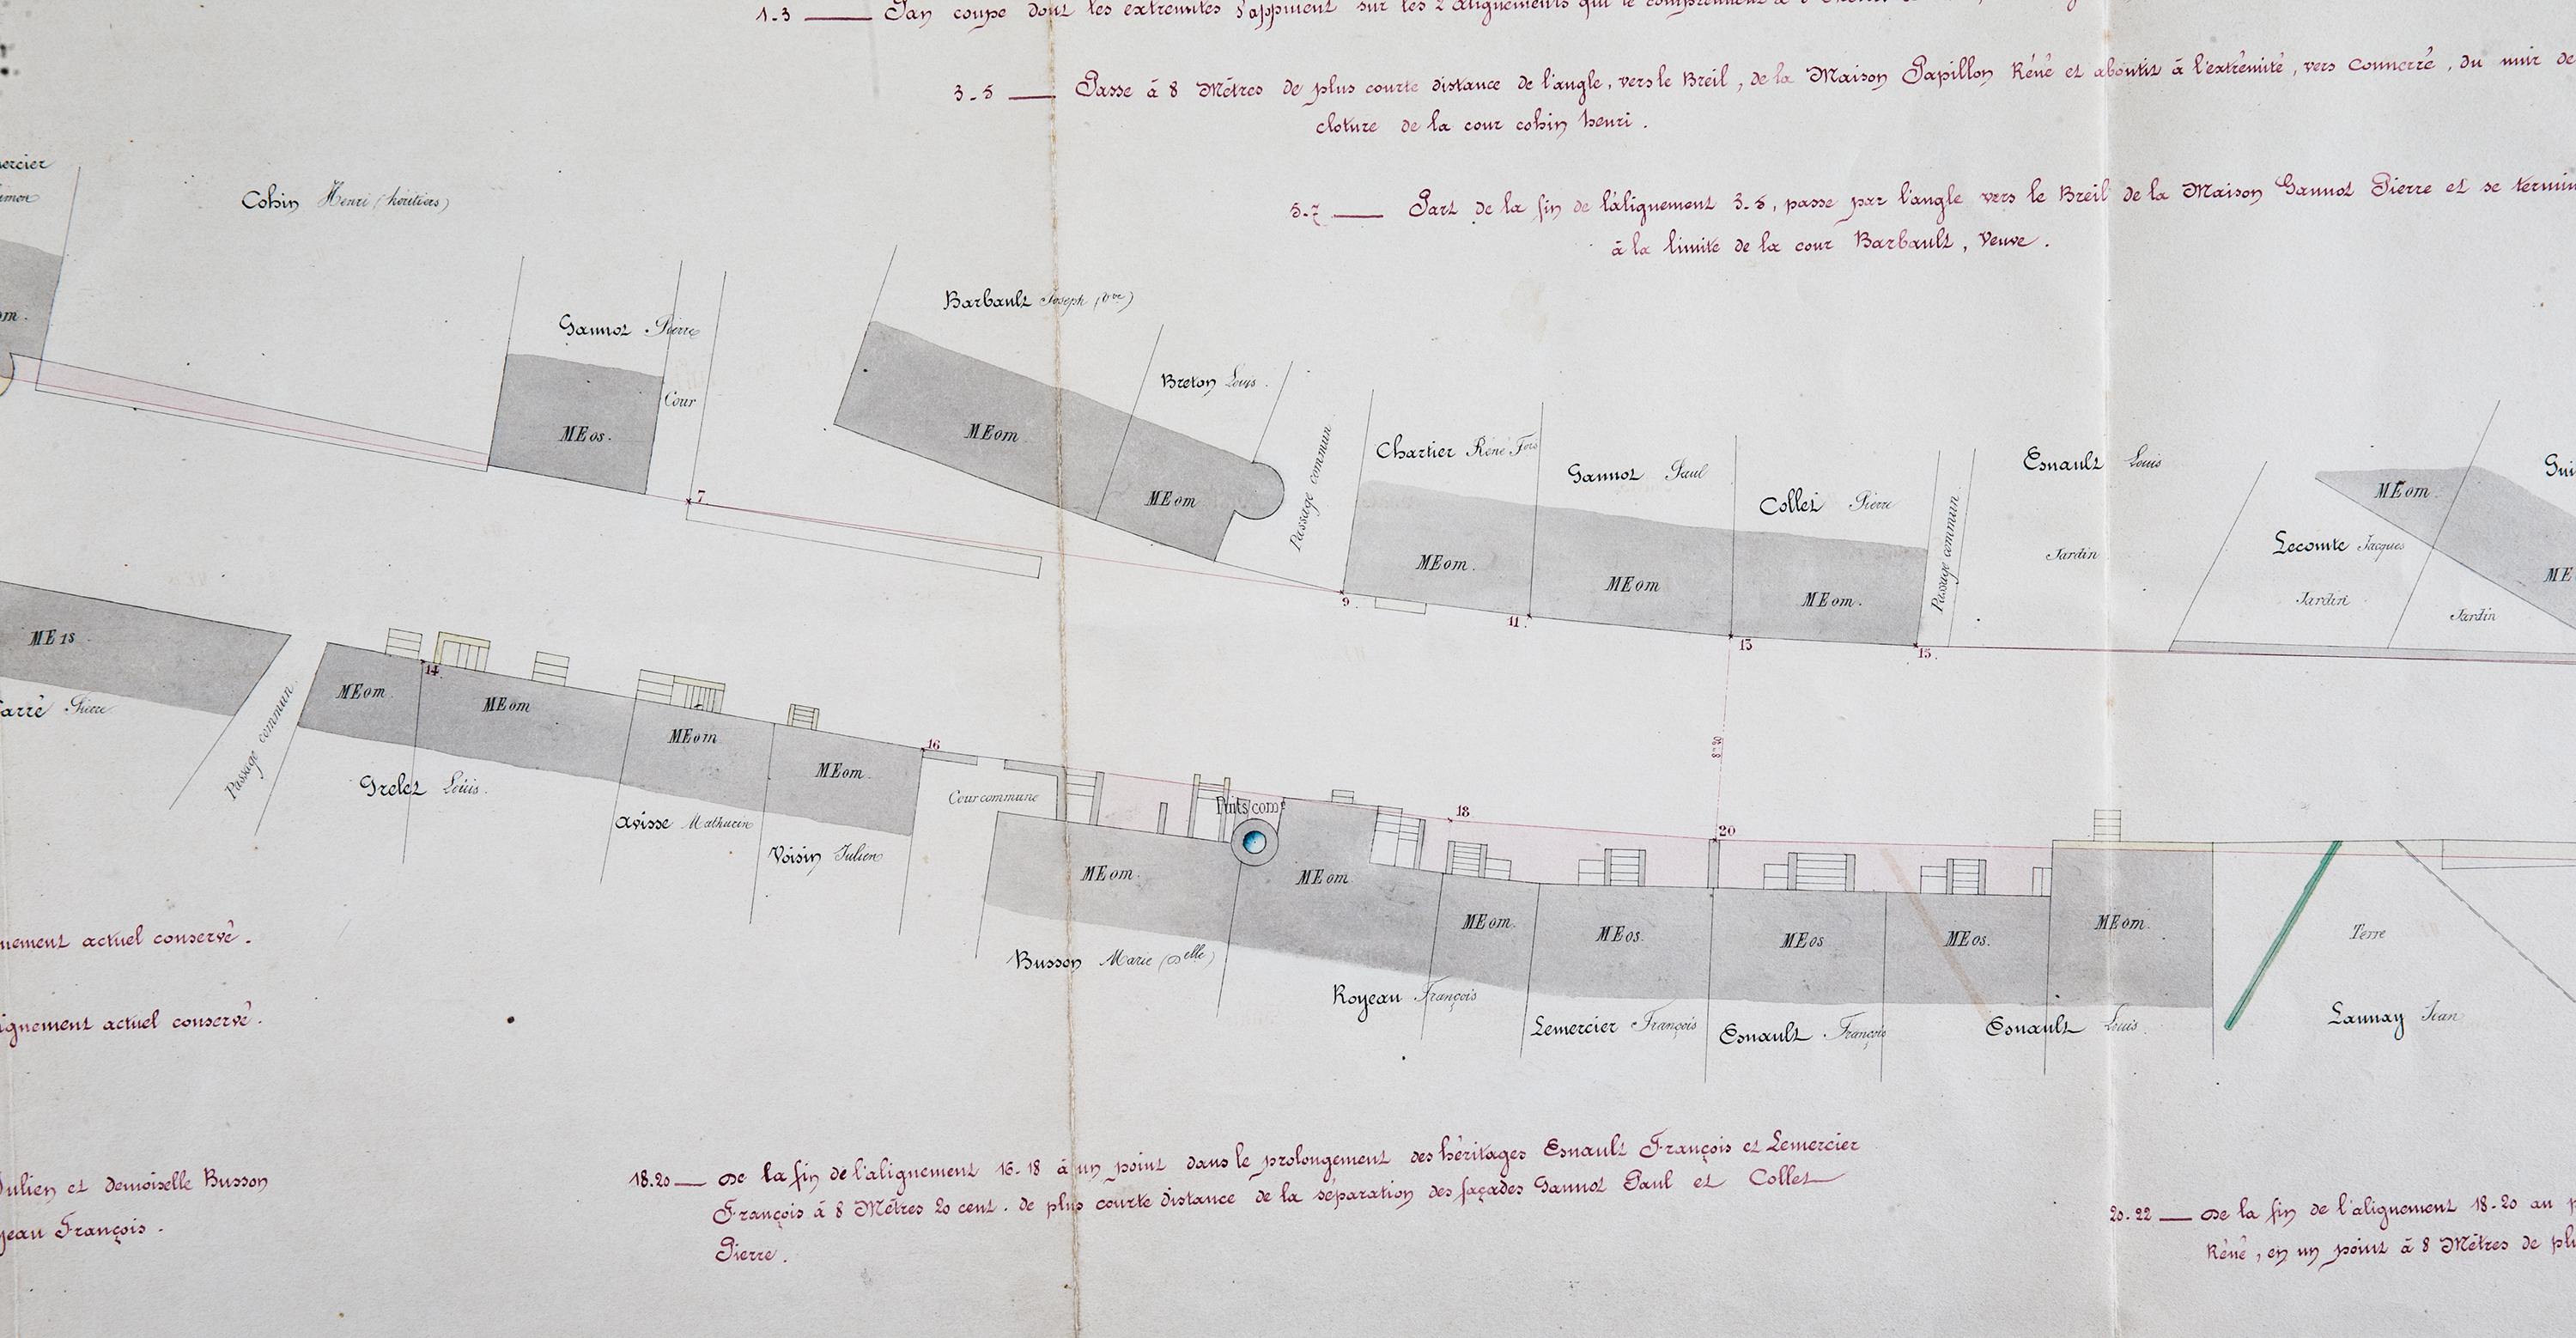 1-3 — Pan coupé dont les extremités s'appuient sur les 2 alignements qui le comprennent à
3-5 — Passe à 8 Mètres de plus courte distance de l'angle, vers le Breil, de la Maison Papillon Réné et aboutit à l'extrémité, vers Connerré, du mur de
cloture de la cour cohin henri.
5-7 — Part de la fin de l'alignement 3-5, passe par l'angle vers le Breil de la Maison Gannot Pierre et se termin
à la limite de la cour Barbault, Veuve.
ercier
imon
om.
Cohin Henri (héritiers)
Gannot Pierre
MEos.
Cour
7
Barbault Joseph (Vve)
MEom
Breton Louis.
MEom
Passage commun
Chartier Réné Fois
MEom.
9
Gannot Paul
MEom
11.
Collet Pierre
MEom.
13
15.
Passage commun
Esnault Louis
Jardin
Lecomte Jacques
Jardin
MEom
Jardin
Gui
ME
ME1s
arré Pierre
Passage commun
MEom
14
MEom
Grelet Louis.
MEom
Avisse Mathurin
MEom.
Voisin Julien
16
Cour commune
MEom.
Busson Marie (Delle)
Puits comn
MEom
Royeau François
18
MEom
MEos.
Lemercier François
8m20
20
MEos
Esnault François
MEos.
MEom.
Esnault Louis
Terre
Launay Jean
nement actuel conservé.
ignement actuel conservé.
Julien et demoiselle Busson
yeau François.
18.20 — De la fin de l'alignement 16-18 à un point dans le prolongement des héritages Esnault François et Lemercier
François à 8 Mètres 20 cent. de plus courte distance de la séparation des façades Gannot Paul et Collet
Pierre.
20.22 — De la fin de l'alignement 18-20 au p
Réné, en un point à 8 Mètres de plu